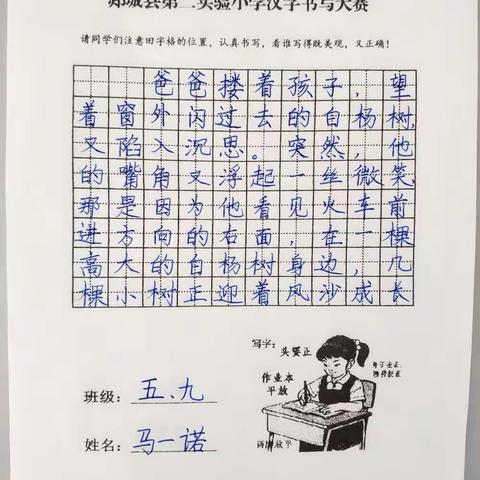 郯城县第二实验小学汉字书写大赛
请同学们注意田字格的位置，认真书写，看谁写得既美观，又正确！
爸爸搂着孩子，望
着窗外闪过去的白杨树，
又陷入沉思。突然，他
的嘴角又浮起一丝微笑，
那是因为他看见火车前
进方向的右面，在一棵
高大的白杨树身边，几
棵小树正迎着风沙成长
写字：
头要正
作业本
平放
身子坐正
两脚放平
班级：五、九
姓名：马一诺